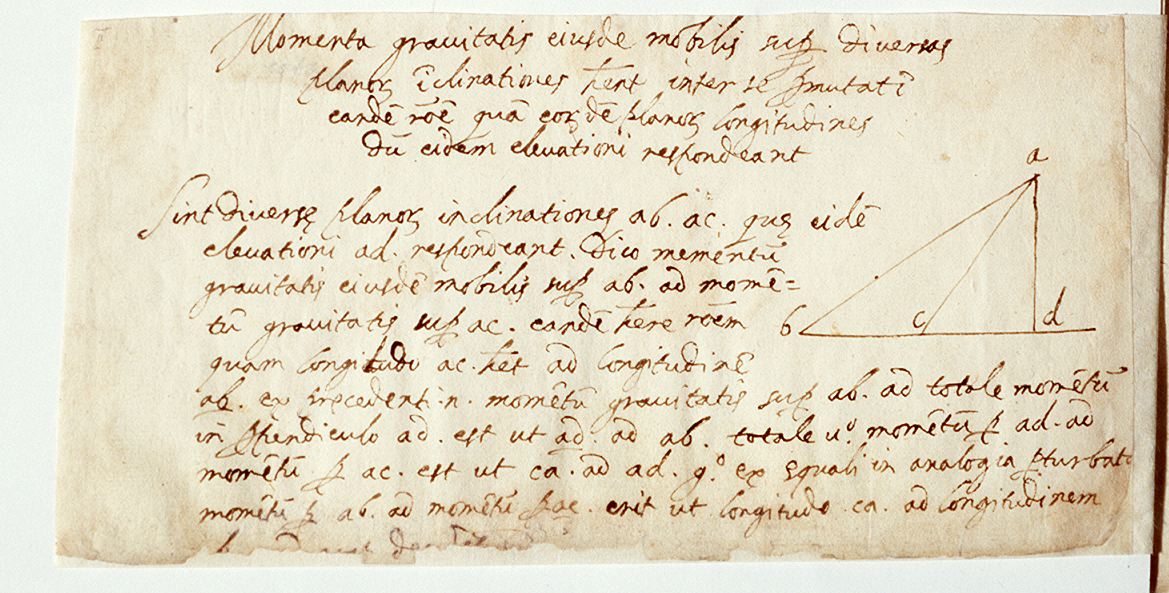 Momenta grauitatis eiusdē mobilis suꝑ diversas
planoꝝ īclinationes hēnt inter se ꝑmutatī
eandē rōē quā eorūdē planoꝝ longitudines
dū eidem elevationi respondeant
Sint diversę planoꝝ inclinationes ab. ac. quę eidē
elevationi ad. respondeant. Dico momentū
grauitatis eiusdē mobilis suꝑ ab. ad momē=
tū grauitatis suꝑ ac. eandē hēre rōem
quam longitudo ac. hēt ad longitudinē
ab. ex precedenti .n. momētū grauitatis suꝑ ab. ad totale momētū
in ꝑpendiculo ad. est ut ad. ad ab. totale uº. momētū ꝑ ad. ad
momētū ꝑ ac. est ut ca. ad ad. gº. ex equali in analogia ꝑturbata
momētū ꝑ ab. ad momētū ꝑ ac. erit ut longitudo ca. ad longitudinem
a
b
c
d